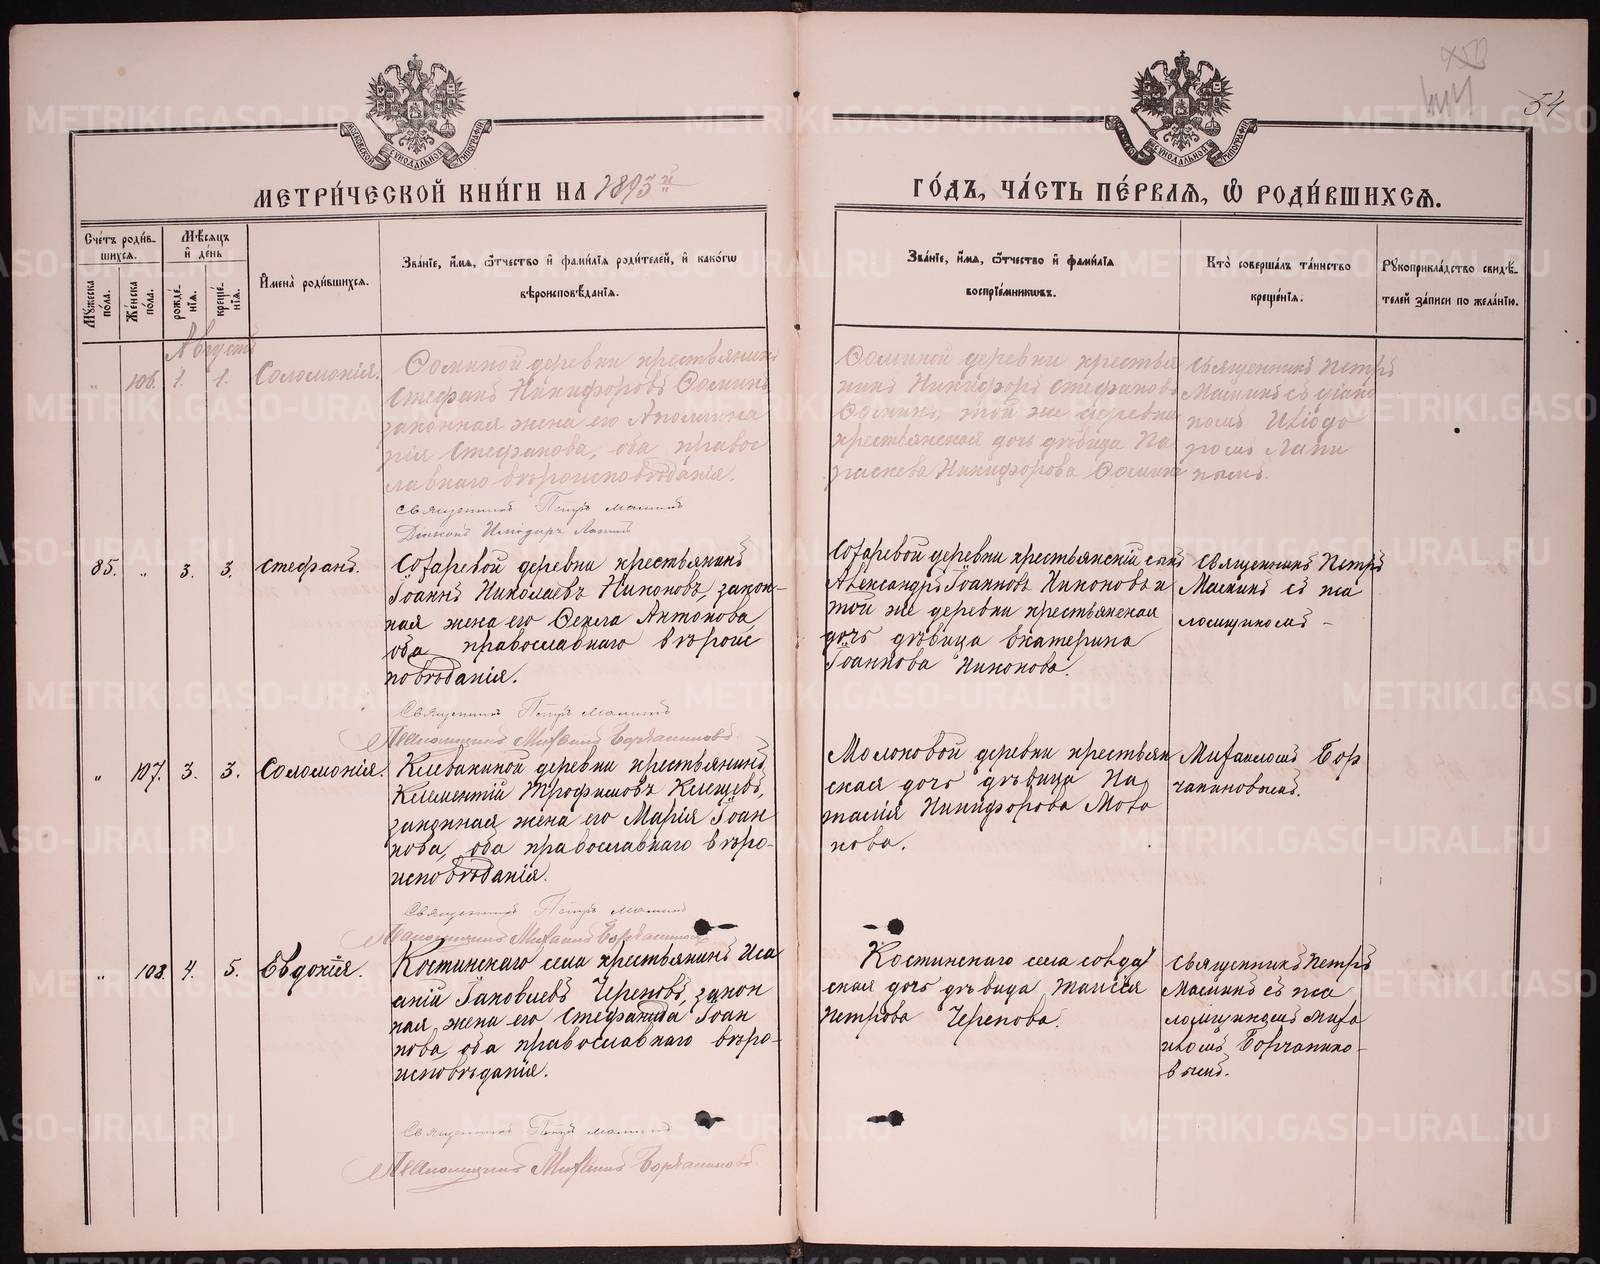 54
МЕТРИ́ЧЕСКОЙ КНИ́ГИ НА 1893 й
ГО́ДЪ, ЧА́СТЬ ПЕ́РВАЯ, Ѡ РОДИ́ВШИХСЯ.
Сче́тъ роди́в-
шихся.
Мѣ́сяцъ
и҆ де́нь
Му́жеска
по́ла.
Же́нска
по́ла.
рожде́-
нїя.
креще́-
нїя.
И҆мена̀ роди́вшихся.
Зва́нїе, и҆́мя, ѻ҆́тчество и҆ фами́лїя роди́телей, и҆ како́гѡ
вѣроисповѣ́данїя.
Зва́нїе, и҆́мя, ѻ҆́тчество и҆ фами́лїя
воспрїе́мниковъ.
Кто̀ соверша́лъ та́инство
креще́нїя.
Рукоприкла́дство свидѣ́-
телей за́писи по жела́нїю.
Августъ
" 106. 1. 1. Соломонія.
Ѳоминой деревни крестьянинъ
Стефанъ Никифоровъ Ѳоминъ
законная жена его Аполлина
рія Стефанова, оба правос
лавнаго вѣроисповѣданія.
Священникъ Петръ Маминъ
Діаконъ Иліодоръ Лапинъ
Ѳоминой деревни крестья
нинъ Никифоръ Стефановъ
Ѳоминъ, той же деревни
крестьянская дочь дѣвица Па
раскева Никифорова Ѳомина
Священникъ Петръ
Маминъ съ діако
номъ Иліодо
ромъ Лапи
нымъ.
85. " 3. 3. Стефанъ.
Сохаревой деревни крестьянинъ
Іоаннъ Николаевъ Никоновъ, закон-
ная жена его Ѳекла Антонова
оба православнаго вѣроис
повѣданія.
Священникъ Петръ Маминъ
Псаломщикъ Михаилъ Борчаниновъ
Сохаревой деревни крестьянскій сынъ
Александръ Іоанновъ Никоновъ и
той же деревни крестьянская
дочь дѣвица Екатерина
Іоаннова Никонова.
Священникъ Петръ
Маминъ съ пса
ломщикомъ -
" 107. 3. 3. Соломонія.
Клевакиной деревни крестьянинъ
Климентій Трофимовъ Клещевъ,
законная жена его Марія Іоан
нова, оба православнаго вѣро-
исповѣданія.
Священникъ Петръ Маминъ
Псаломщикъ Михаилъ Борчаниновъ
Молоковой деревни крестьян
ская дочь дѣвица На
талія Никифорова Моло
кова.
Михаиломъ Бор
чаниновымъ.
" 108. 4. 5. Евдокія.
Костинскаго села крестьянинъ Иса
акій Іаковлевъ Черепов, закон
ная жена его Стефанида Іоан
нова, оба православнаго вѣро-
исповѣданія.
Священникъ Петръ Маминъ
Псаломщикъ Михаилъ Борчаниновъ
Костинскаго села солдат
ская дочь дѣвица Таисія
Петрова Черепова.
Священникъ Петръ
Маминъ съ пса
ломщикомъ Миха
иломъ Борчанино-
вымъ.